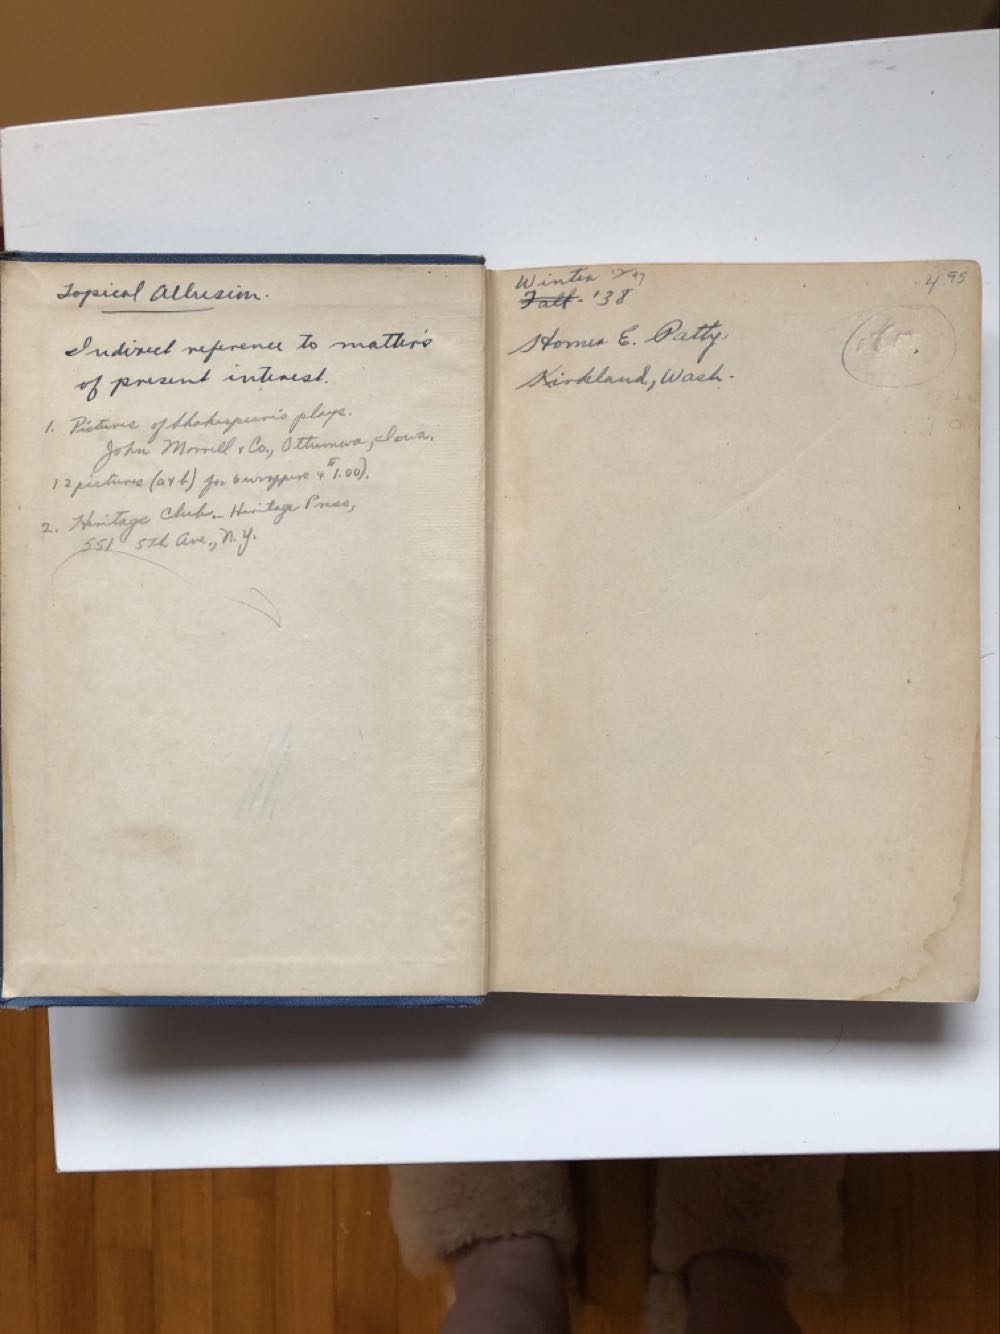 Topical Allusion.
Indirect reference to matter's
of present interest.
1. Pictures of Shakespeare's plays.
John Morrell & Co., Ottumwa, Iowa.
12 pictures (a & b) for 6 wrappers & $1.00).
2. Heritage Club - Heritage Press,
551 5th Ave., N.Y.
Winter
Fall - '38
4.95
Homer E. Patty
Kirkland, Wash.